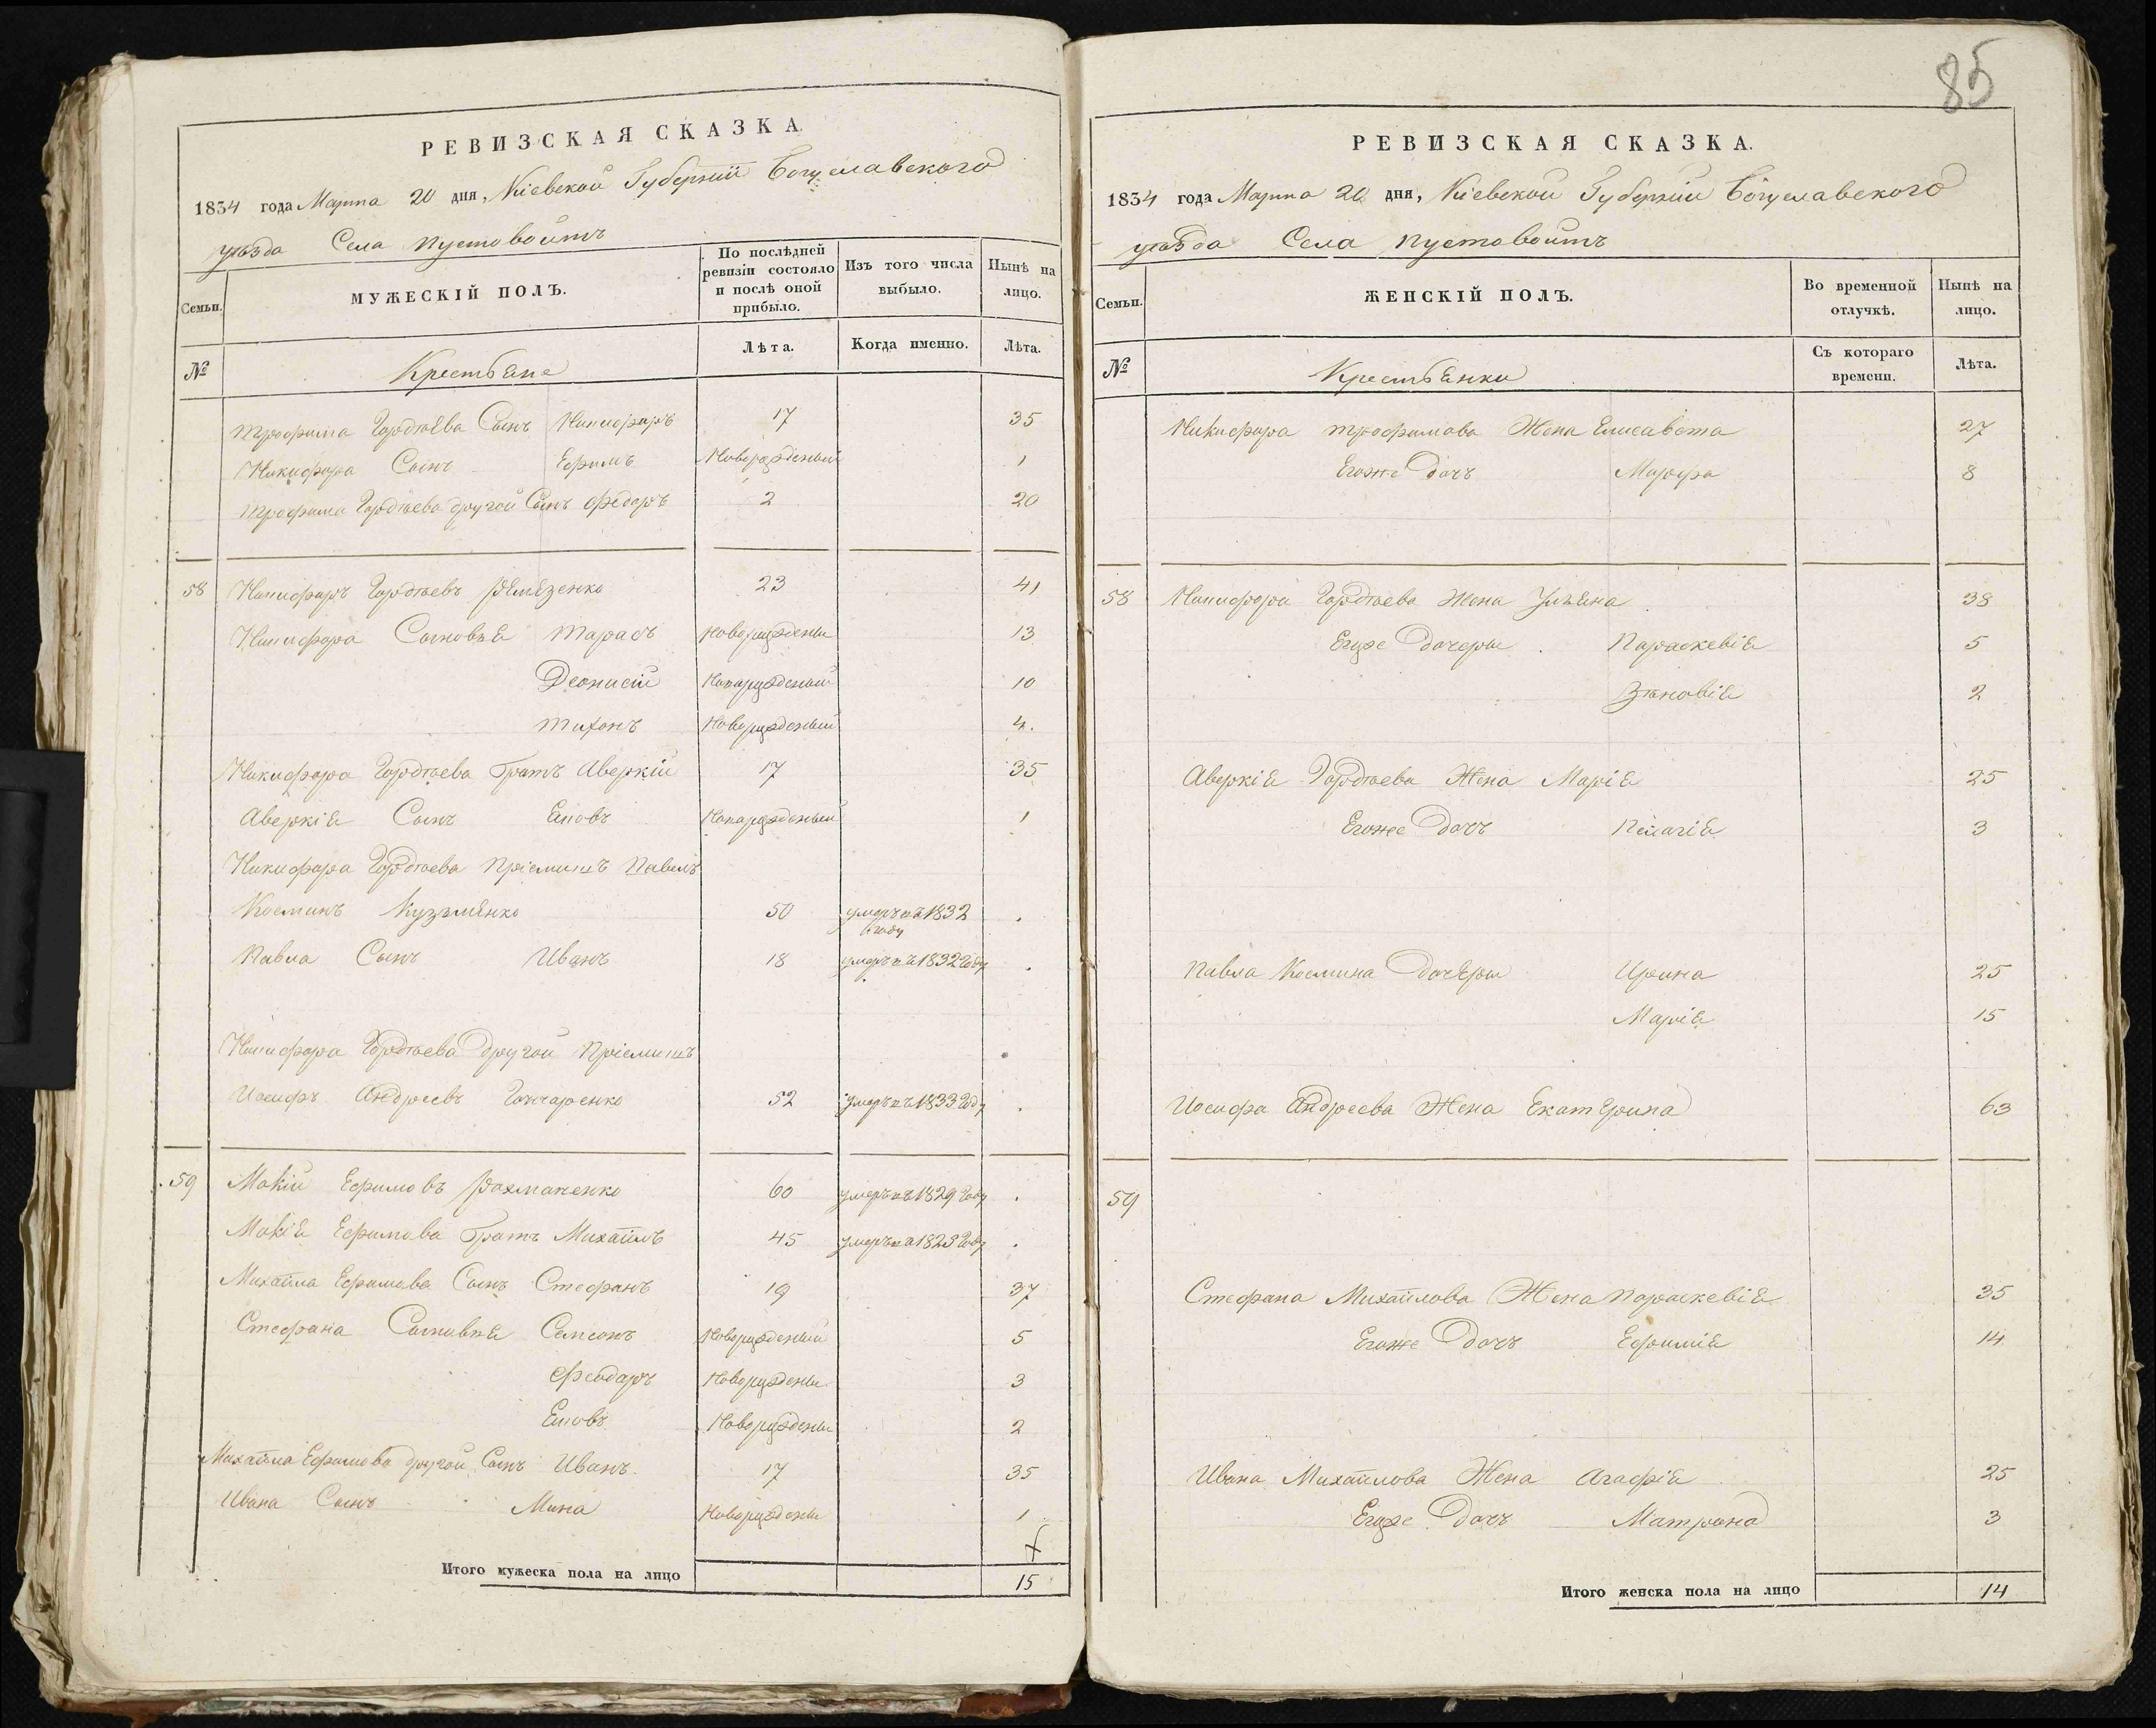 85
РЕВИЗСКАЯ СКАЗКА.
1834 года Марта 20 дня, Кіевской Губерніи Богуславского
уѣзда Села Пустовойтъ
Семьи.
МУЖЕСКІЙ ПОЛЪ.
По послѣдней ревизіи состояло и послѣ оной прибыло.
Изъ того числа выбыло.
Нынѣ на лицо.
№
Крестьяне
Лѣта.
Когда именно.
Лѣта.
Трофима Гордѣева Сынъ Никифоръ 17 35
Никифора Сынъ Ефимъ Новорожденый 1
Трофима Гордѣева другой Сынъ Федоръ 2 20
58 Никифоръ Гордѣевъ 23 41
Никифора Сыновья Тарасъ Новорожденый 13
Деонисій Новорожденый 10
Тихонъ Новорожденый 4.
Никифора Гордѣева Братъ Аверкій 17 35
Аверкія Сынъ Новорожденый 1
Никифора Гордѣева Пріемишъ Павелъ
Косминъ Кузьменко 50 умеръ въ 1832 году
Павла Сынъ Иванъ 18 умеръ въ 1832 Году
Никифора Гордѣева другой Пріемишъ
Иосифъ Андреевъ Гончаренко 52 умеръ въ 1833 Году
59 Мокій Ефимовъ Рохманенко 60 умеръ въ 1829 Году
Мокія Ефимова Братъ Михаилъ 45 умеръ въ Году
Михаила Ефимова Сынъ Стефанъ 19 37
Стефана Сыновья Самсонъ Новорожденый 5
Феодоръ Новорожденый 3
Новорожденый 2
Михаила Ефимова другой Сынъ Иванъ 17 35
Ивана Сынъ Мина Новорожденый 1
Итого мужеска пола на лицо 15
РЕВИЗСКАЯ СКАЗКА.
1834 года Марта 20 дня, Кіевской Губерніи Богуславского
уѣзда Села Пустовойтъ
Семьи.
ЖЕНСКІЙ ПОЛЪ.
Во временной отлучкѣ.
Нынѣ на лицо.
№
Крестьянки
Съ котораго времени.
Лѣта.
Никифора Трофимова Жена Елисавета 27
Егоже Дочъ Марфа 8
58 Никифора Гордѣева Жена Ульяна 38
Егоже Дочеры Параскевія 5
Зѣновія 2
Аверкія Гордѣева Жена Марія 25
Егоже Дочъ Пелагія 3
Павла Космина Дочеры Ирина 25
Марія 15
Иосифа Андреева Жена Екатерина 63
59
Стефана Михайлова Жена Параскевія 35
Егоже Дочъ Ефимія 14
Ивана Михайлова Жена Агафія 25
Егоже Дочъ Матрона 3
Итого женска пола на лицо 14